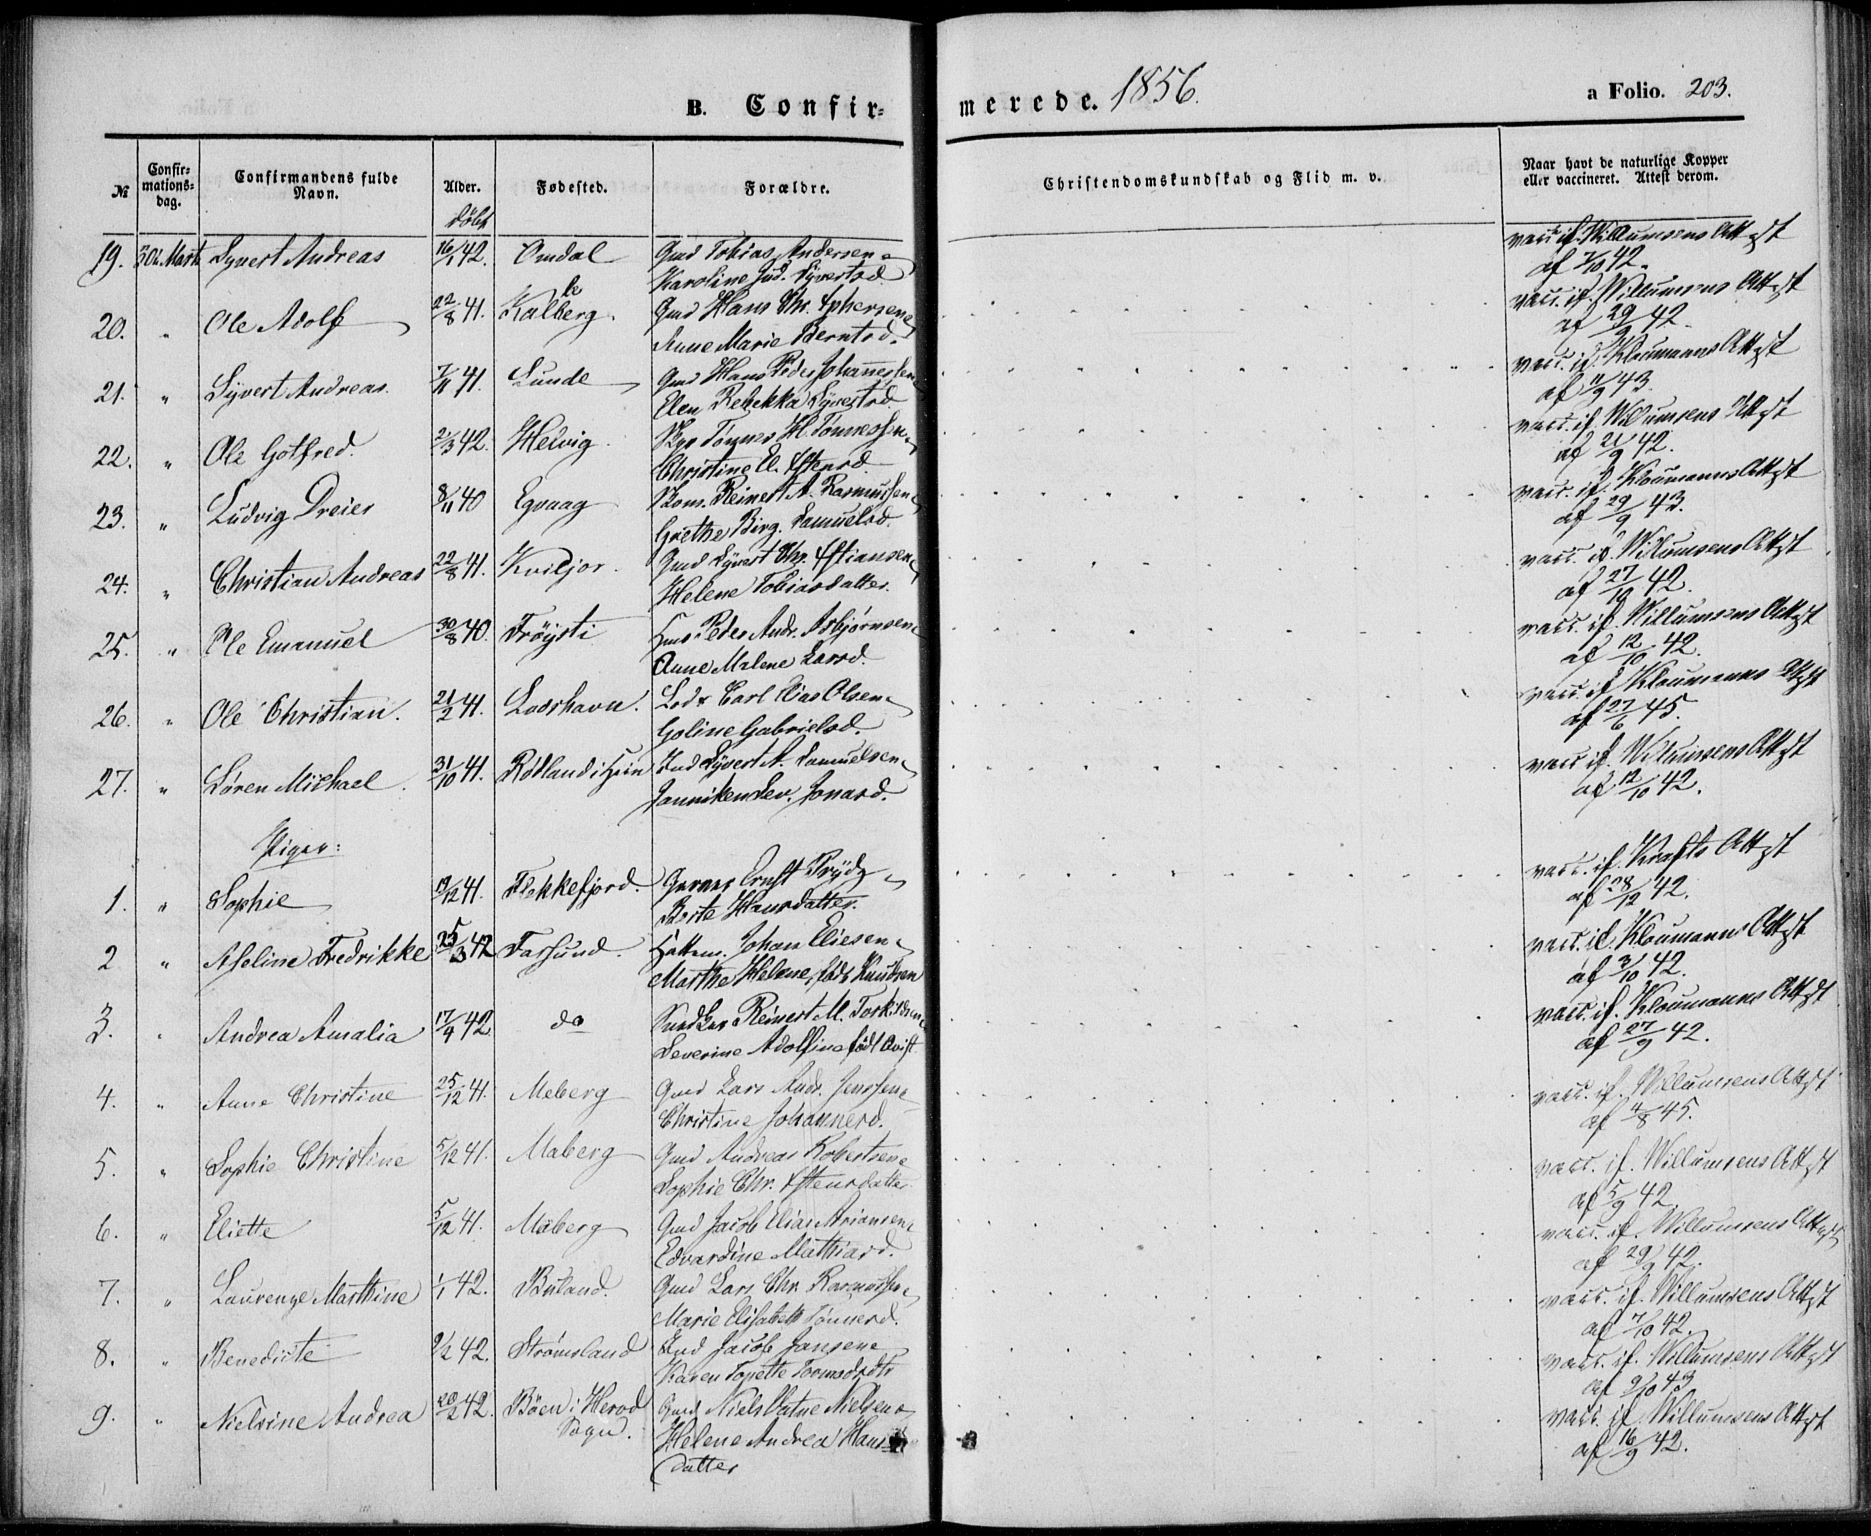 B. Confirmerede. 1856. a Folio. 203.
№ Confirmationsdag. Confirmandens fulde Navn. Alder. Fødested. Forældre. Christendomskundskab og Flid m. v. Naar havt de naturlige Kopper eller vaccineret. Attest derom.
døbt
19. 30te Marts Syvert Andreas 16/1 42. Omdal Gmd Tobias Andersen vacc. if. Willumsens Attest
Karoline Jud. Syvertsd. af 7/10 42.
20. " Ole Adolf 22/8 41. Kalleberg. Gmd Hans Chr. vacc. if. Willumsens Attest
Anne Marie Berntsd. af 29/9 42.
21. " Syvert Andreas. 7/11 41. Lunde Gmd Hans Peder Johannessen vacc. if. Kloumanns Attest
Elen Rebekka Syvertsd af 11/9 43.
22. " Ole Gotfred. 2/3 42. Helvig. Tønnes H. Tønnessen vacc. if. Willumsens Attest
Christine El. Ostensd. af 21/9 42.
23. " Ludvig Dreier 8/11 40 Egvaag Reinert A. Rasmussen vacc. if. Kloumanns Attest
Grethe Birg. Samuelsd. af 29/9 43.
24. " Christian Andreas 22/8 41. Kviljor. Gmd Syvert Chr. vacc. if. Willumsens Attest
Helene Tobiasdatter. af 27/10 42.
25. " Ole Emanuel 30/8 40. Frøysti Peder Andr. Asbjørnsen vacc. if. Willumsens Attest
Anne Malene Larsd. af 12/10 42.
26. " Ole Christian. 21/2 41. Loshavn. Lods Carl Elias Olsen vacc. if. Kloumanns Attest
Goline Gabrielsd. af 27/6 45.
27. " Søren Michael. 31/10 41. Rødland i Syvert A. Samuelsen vacc. if. Willumsens Attest
Janniken Sev. Jonasd. af 12/10 42.
Piger:
1. " Sophie 19/12 41. Flekkefjord. Garver Ernst Prydz vacc. if. Krafts Attest
Berte Hansdatter. af 28/12 42.
2 " Aseline Fredrikke 25/3 42 Farsund. Johan Eliesen vacc. if. Kloumanns Attest
Marthe Helene, født Knudsen af 3/10 42.
3. " Andrea Amalia 17/4 42 do Reinert M. Torkildsen vacc. if. Kloumanns Attest
Severine Adolfine født Qvist af 27/9 42.
4. " Anne Christine 25/12 41. Meberg Gmd Lars Andr. Jenssen vacc. if. Willumsens Attest
Christine Johannesd. af 4/8 45.
5. " Sophie Christine 5/12 41. Maberg Gmd Andreas Robertsen vacc. if. Willumsens Attest
Sophie Chr. Ostensdatter af 5/9 42.
6. " Eliette 5/12 41. Maberg Gmd Jacob Elias Ariansen vacc. if. Willumsens Attest
Edvardine Mathiasd. af 29/9 42.
7. " Laurenze Marthine 1/1 42. Buland. Gmd Lars Chr. Rasmussen vacc. if. Willumsens Attest
Marie Elisabeth Tønnesd. af 7/10 42.
8. " Benedicte 2/2 42. Strømsland Ind Jacob Jansen vacc. if. Willumsens Attest
Karen Tomette af 2/10 43
9. " Nielsine Andrea 20/2 42. Bøen i Herod Gmd Niels Vatne Nielsen vacc. if. Willumsens Attest
Sogn. Helene Andrea Hans af 16/9 42.
datter